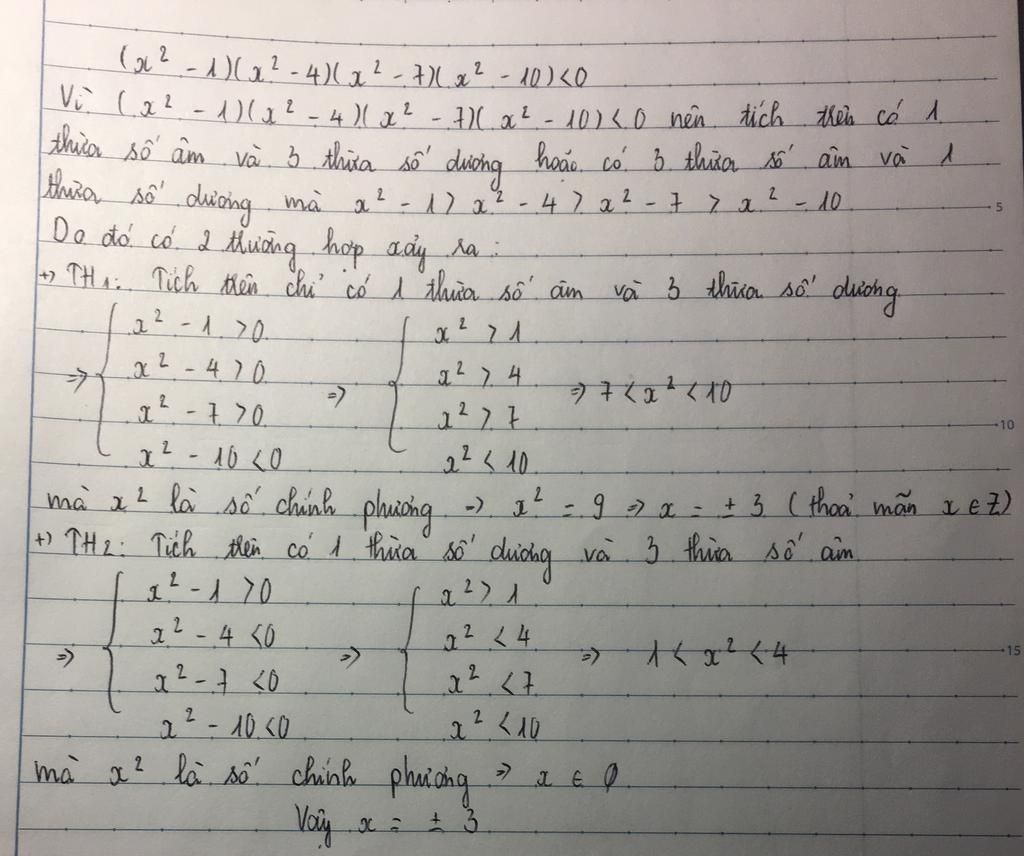 (x² - 1)(x² - 4)(x² - 7)(x² - 10) < 0
Vì (x² - 1)(x² - 4)(x² - 7)(x² - 10) < 0 nên tích trên có 1
thừa số âm và 3 thừa số dương hoặc có 3 thừa số âm và 1
thừa số dương mà x² - 1 > x² - 4 > x² - 7 > x² - 10
5
Do đó có 2 trường hợp xảy ra:
+) TH1: Tích trên chỉ có 1 thừa số âm và 3 thừa số dương
x² - 1 > 0 x² > 1
x² - 4 > 0 x² > 4
=> => => 7 < x² < 10
x² - 7 > 0 x² > 7
10
x² - 10 < 0 x² < 10
mà x² là số chính phương => x² = 9 => x = ± 3 (thoả mãn x ∈ Z)
+) TH2: Tích trên có 1 thừa số dương và 3 thừa số âm
x² - 1 > 0 x² > 1
x² - 4 < 0 x² < 4
=> => => 1 < x² < 4
15
x² - 7 < 0 x² < 7
x² - 10 < 0 x² < 10
mà x² là số chính phương => x ∈ ∅
Vậy x = ± 3